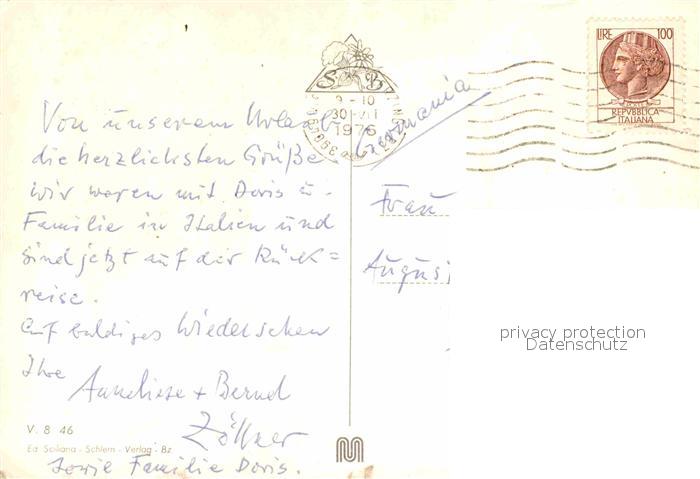 Von unserem Urlaub
die herzlichsten Grüße
wir waren mit Doris u.
Familie in Italien und
sind jetzt auf der Rück=
reise.
Auf baldiges Wiedersehen
Ihre
Anneliese + Bernd
Zöllner
sowie Familie Doris.
V. 8 46
Ed. Sciliana - Schlern - Verlag - Bz
S B
9-10
30 VII
1976
39
Germania
LIRE 100
REPVBBLICA
ITALIANA
Frau
Augus
privacy protection
Datenschutz